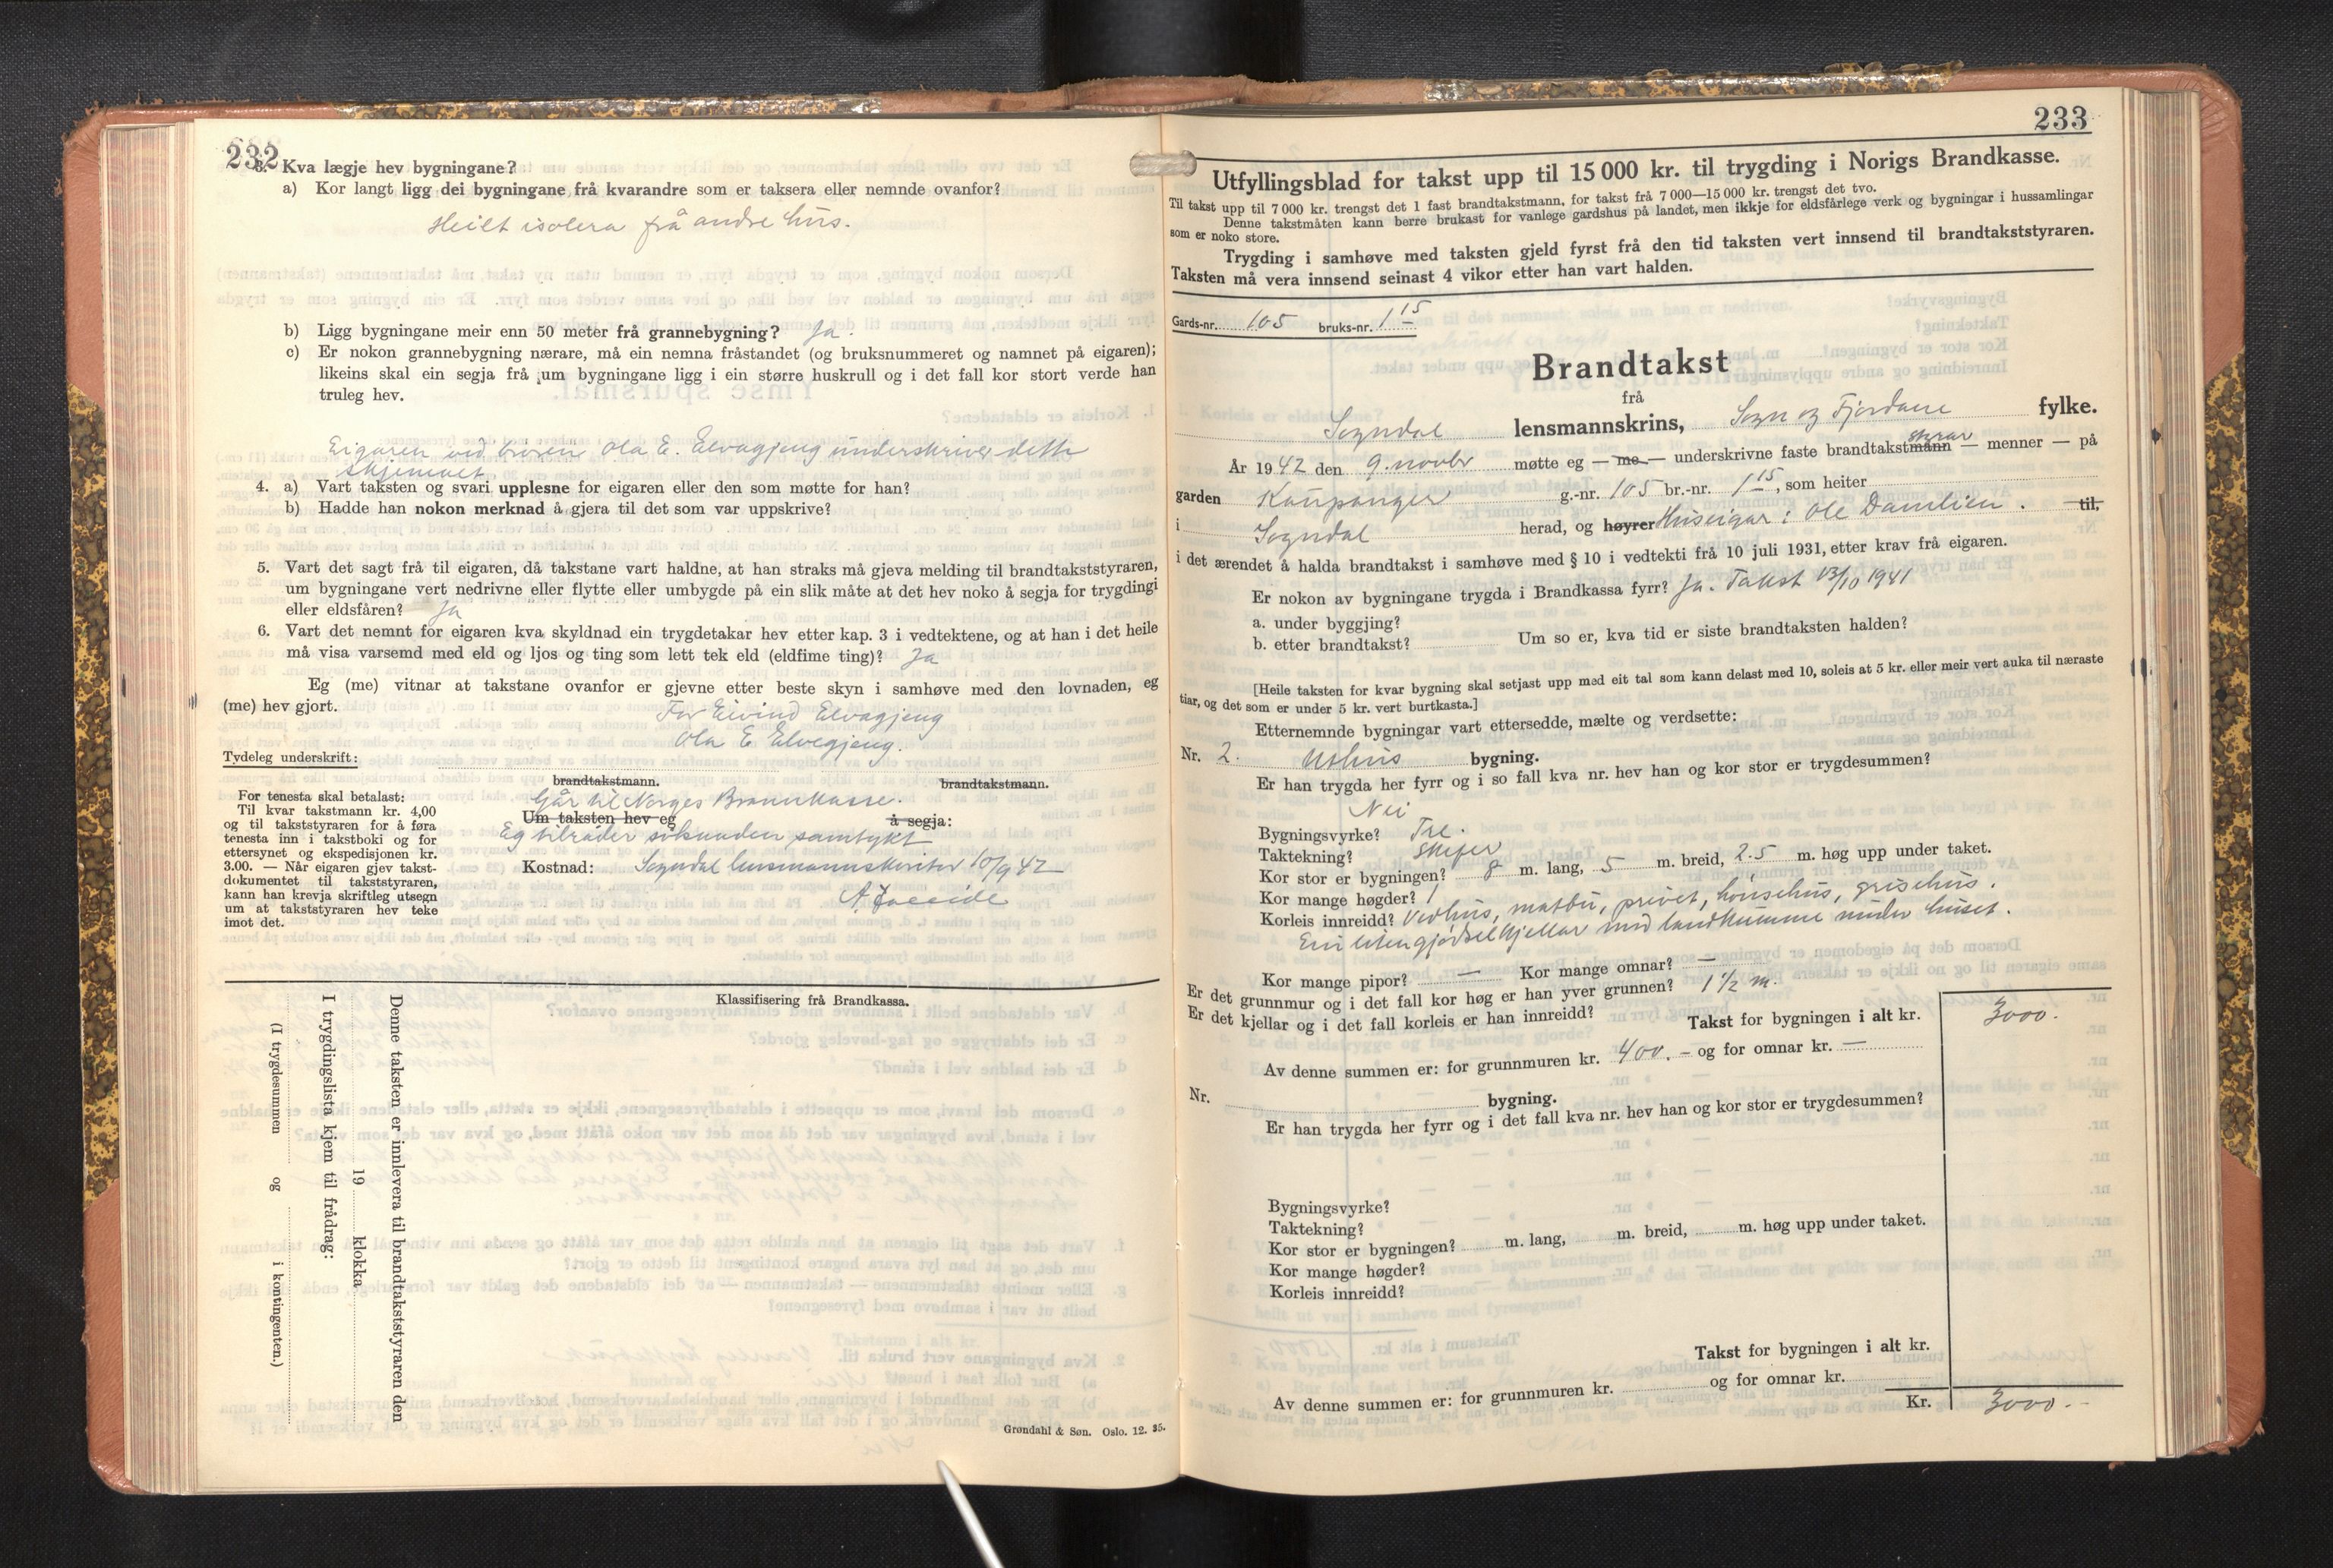 232
3. Kva lægje hev bygningane?
a) Kor langt ligg dei bygningane frå kvarandre som er taksera eller nemnde ovanfor?
Heilt isolera frå andre hus.
b) Ligg bygningane meir enn 50 meter frå grannebygning? Ja.
c) Er nokon grannebygning nærare, må ein nemna fråstandet (og bruksnummeret og namnet på eigaren);
likeins skal ein segja frå um bygningane ligg i ein større huskrull og i det fall kor stort verde han
truleg hev.
Eigaren ved broren Ola E. Elvagjeng underskriver dette
skjemaet
4. a) Vart taksten og svari upplesne for eigaren eller den som møtte for han?
b) Hadde han nokon merknad å gjera til det som var uppskrive?
5. Vart det sagt frå til eigaren, då takstane vart haldne, at han straks må gjeva melding til brandtakststyraren,
um bygningane vert nedrivne eller flytte eller umbygde på ein slik måte at det hev noko å segja for trygdingi
eller eldsfåren? Ja
6. Vart det nemnt for eigaren kva skyldnad ein trygdetakar hev etter kap. 3 i vedtektene, og at han i det heile
må visa varsemd med eld og ljos og ting som lett tek eld (eldfime ting)? Ja
Eg (me) vitnar at takstane ovanfor er gjevne etter beste skyn i samhøve med den lovnaden, eg
(me) hev gjort.
For Eivind Elvagjeng
Ola E. Elvegjeng.
Tydeleg underskrift:
brandtakstmann. brandtakstmann.
For tenesta skal betalast:
Til kvar takstmann kr. 4,00
og til takststyraren for å føra
tenesta inn i takstboki og for
ettersynet og ekspedisjonen kr.
3.00. — Når eigaren gjev takst-
dokumentet til takststyraren,
kann han krevja skriftleg utsegn
um at takststyraren hev teke
imot det.
Går til Norges Brannkasse.
Um taksten hev eg å segja:
Eg tilråder søknaden samtykt
Kostnad: Sogndal lensmannskontor 10/9 42
Klassifisering frå Brandkassa.
Denne taksten er innlevera til brandtakststyraren den
19 klokka
I trygdingslista kjem til frådrag:
(I trygdesummen og i kontingenten.)
Grøndahl & Søn. Oslo. 12. 35.
233
Utfyllingsblad for takst upp til 15 000 kr. til trygding i Norigs Brandkasse.
Til takst upp til 7 000 kr. trengst det 1 fast brandtakstmann, for takst frå 7 000—15 000 kr. trengst det tvo.
Denne takstmåten kann berre brukast for vanlege gardshus på landet, men ikkje for eldsfårlege verk og bygningar i hussamlingar
som er noko store.
Trygding i samhøve med taksten gjeld fyrst frå den tid taksten vert innsend til brandtakststyraren.
Taksten må vera innsend seinast 4 vikor etter han vart halden.
Gards-nr. 105 bruks-nr. 1 15
Brandtakst
frå
Sogndal lensmannskrins, Sogn og Fjordane fylke.
År 1942 den 9. novbr møtte eg — me — underskrivne faste brandtakstmann styrar — menner — på
garden Kaupanger g.-nr. 105 br.-nr. 1 15, som heiter
i Sogndal herad, og høyrer Huseigar: Ole Damlien. til,
i det ærendet å halda brandtakst i samhøve med § 10 i vedtekti frå 10 juli 1931, etter krav frå eigaren.
Er nokon av bygningane trygda i Brandkassa fyrr? Ja. Takst 13/10 1941
a. under byggjing?
b. etter brandtakst? Um so er, kva tid er siste brandtaksten halden?
[Heile taksten for kvar bygning skal setjast upp med eit tal som kann delast med 10, soleis at 5 kr. eller meir vert auka til næraste
tiar, og det som er under 5 kr. vert burtkasta.]
Etternemnde bygningar vart ettersedde, mælte og verdsette:
Nr. 2. Uthus bygning.
Er han trygda her fyrr og i so fall kva nr. hev han og kor stor er trygdesummen?
Nei
Bygningsvyrke? Tre.
Taktekning? Skifer
Kor stor er bygningen? 8 m. lang, 5 m. breid, 2.5 m. høg upp under taket.
Kor mange høgder? 1
Korleis innreidd? Vedhus, matbu, privet, hønsehus, grisehus.
Ein liten gjødselkjellar med landkumme under huset.
Kor mange pipor? — Kor mange omnar? —
Er det grunnmur og i det fall kor høg er han yver grunnen? 1 1/2 m.
Er det kjellar og i det fall korleis er han innreidd?
Takst for bygningen i alt kr. 3000.
Av denne summen er: for grunnmuren kr. 400. - og for omnar kr. —
Nr. bygning.
Er han trygda her fyrr og i det fall kva nr. hev han og kor stor er trygdesummen?
Bygningsvyrke?
Taktekning?
Kor stor er bygningen? m. lang, m. breid, m. høg upp under taket.
Kor mange høgder?
Korleis innreidd?
Takst for bygningen i alt kr.
Av denne summen er: for grunnmuren kr. og for omnar kr.
Kr. 3000.-